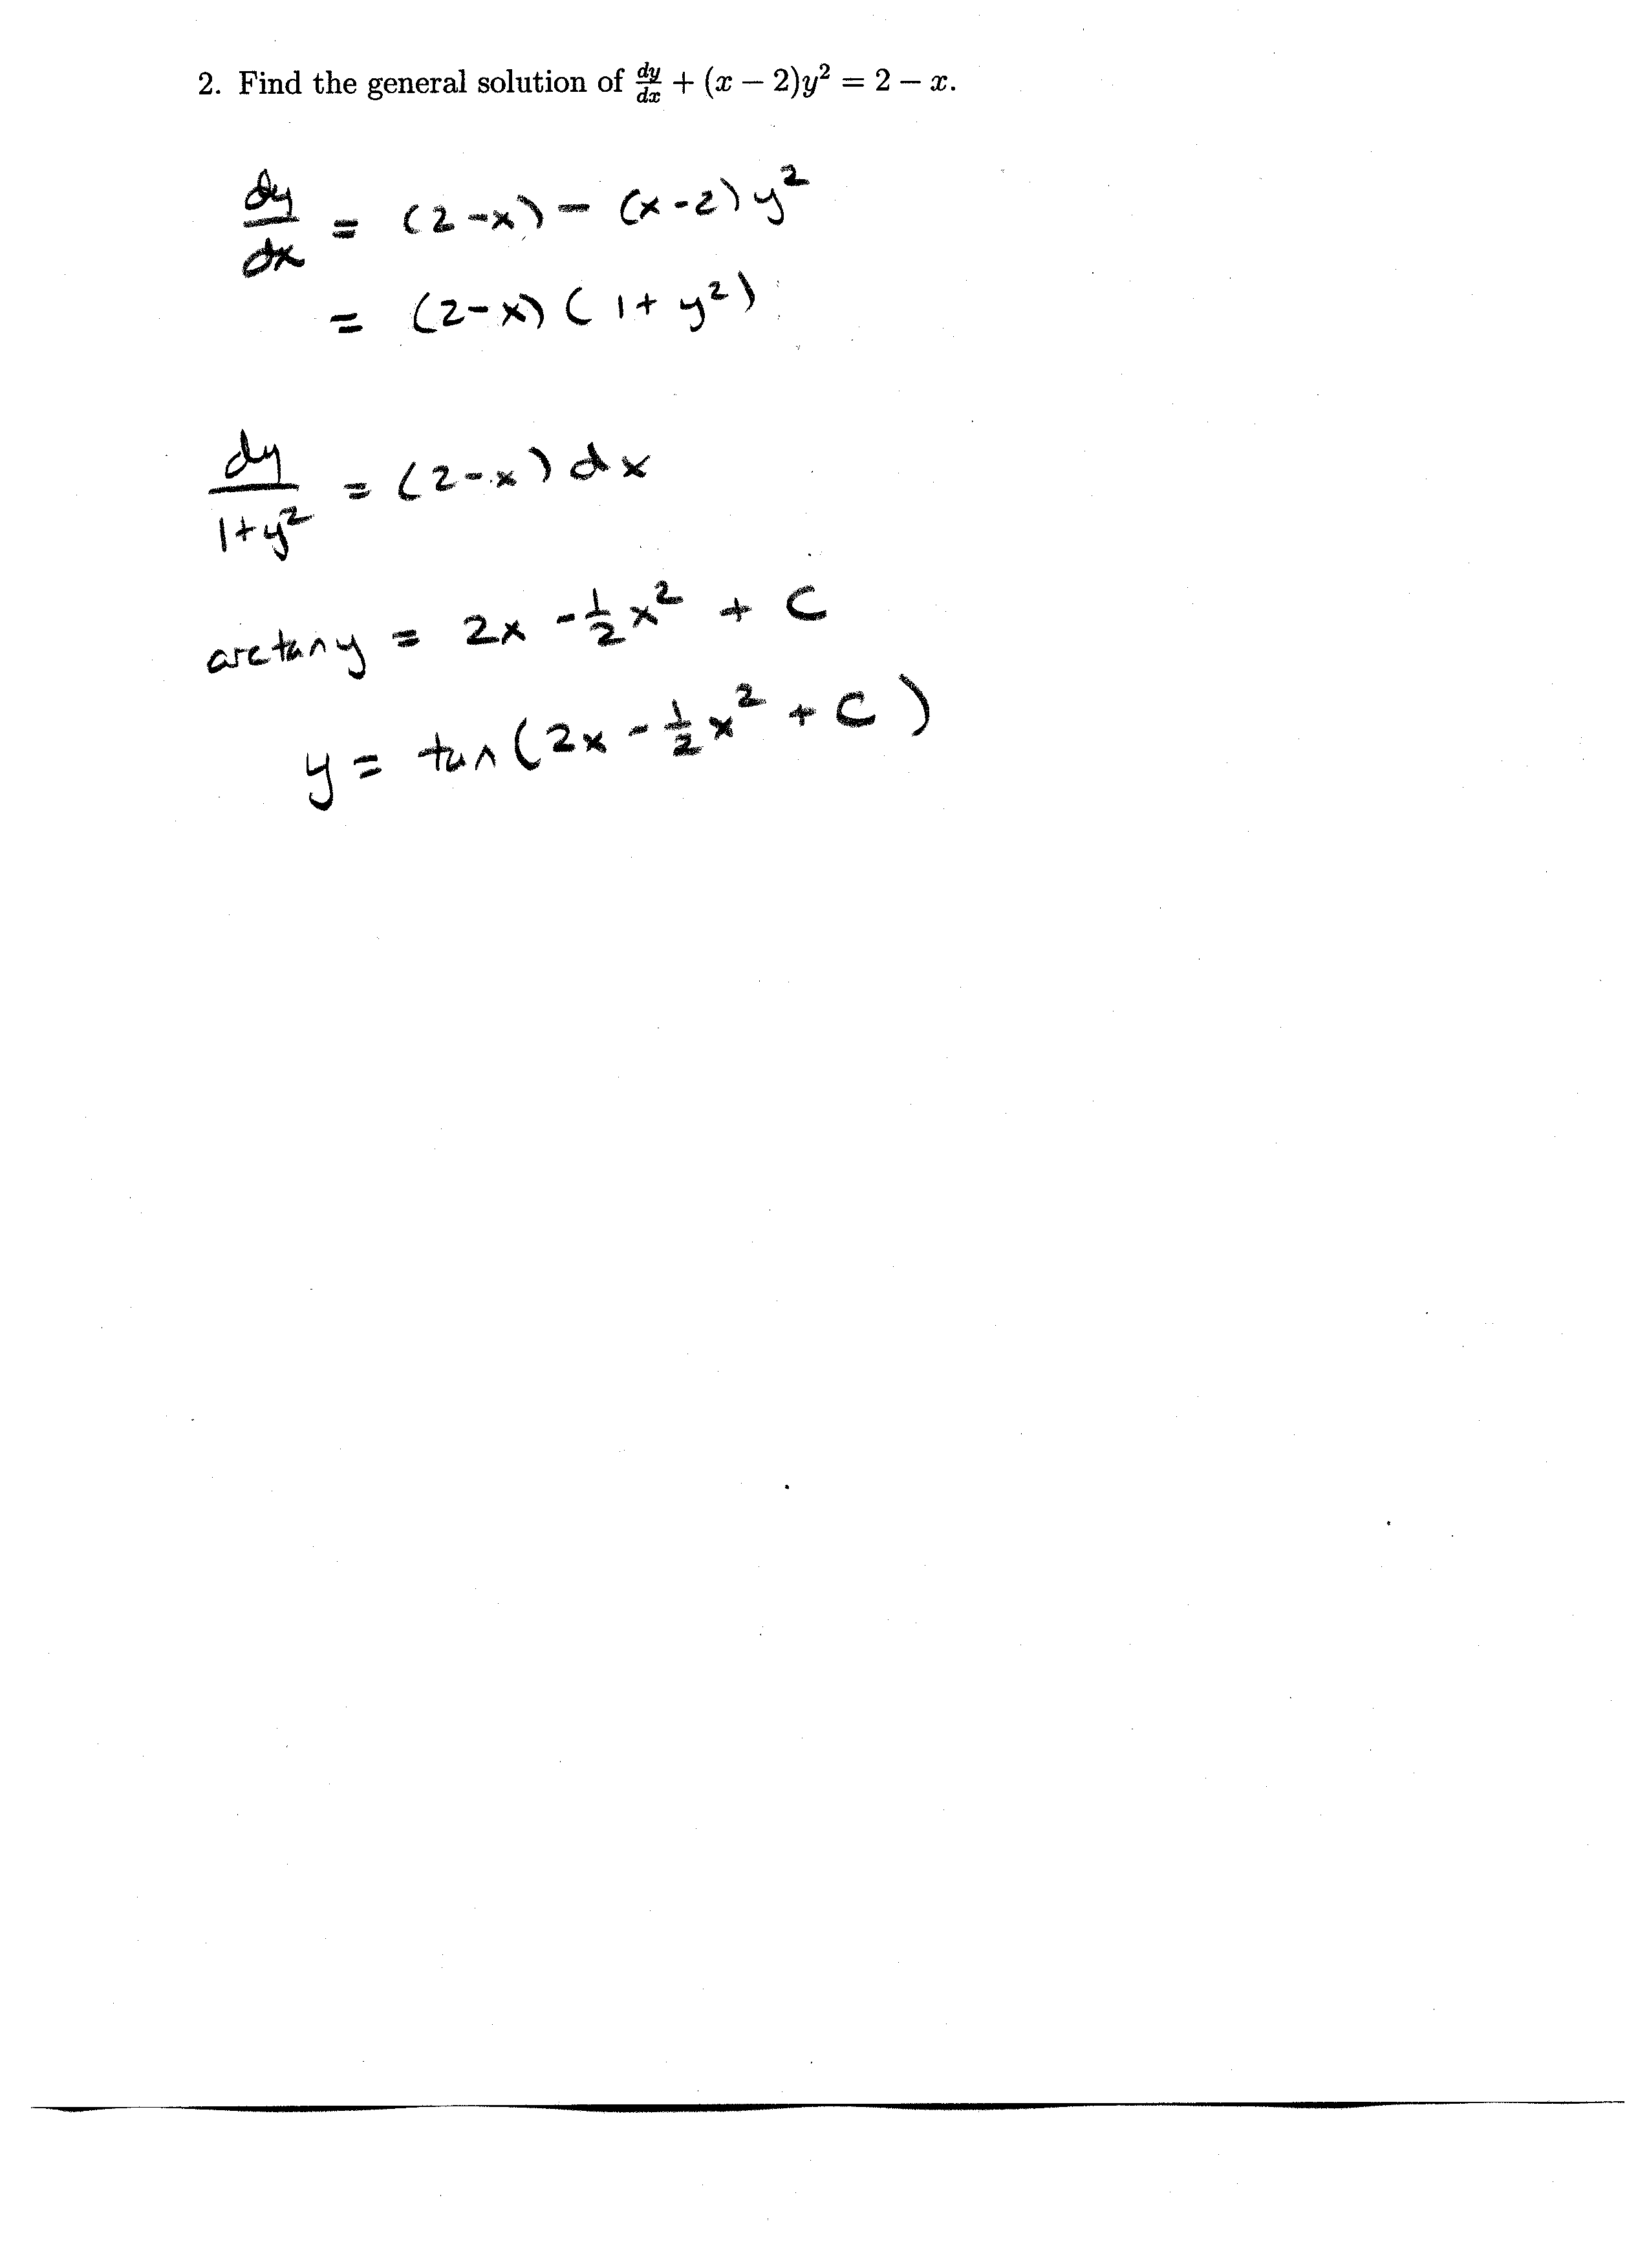 2. Find the general solution of dy/dx + (x − 2)y² = 2 − x.
dy/dx = (2-x) - (x-2) y²
= (2-x) (1+y²)
dy/1+y² = (2-x) dx
arctan y = 2x - 1/2 x² + C
y = tan (2x - 1/2 x² + C)